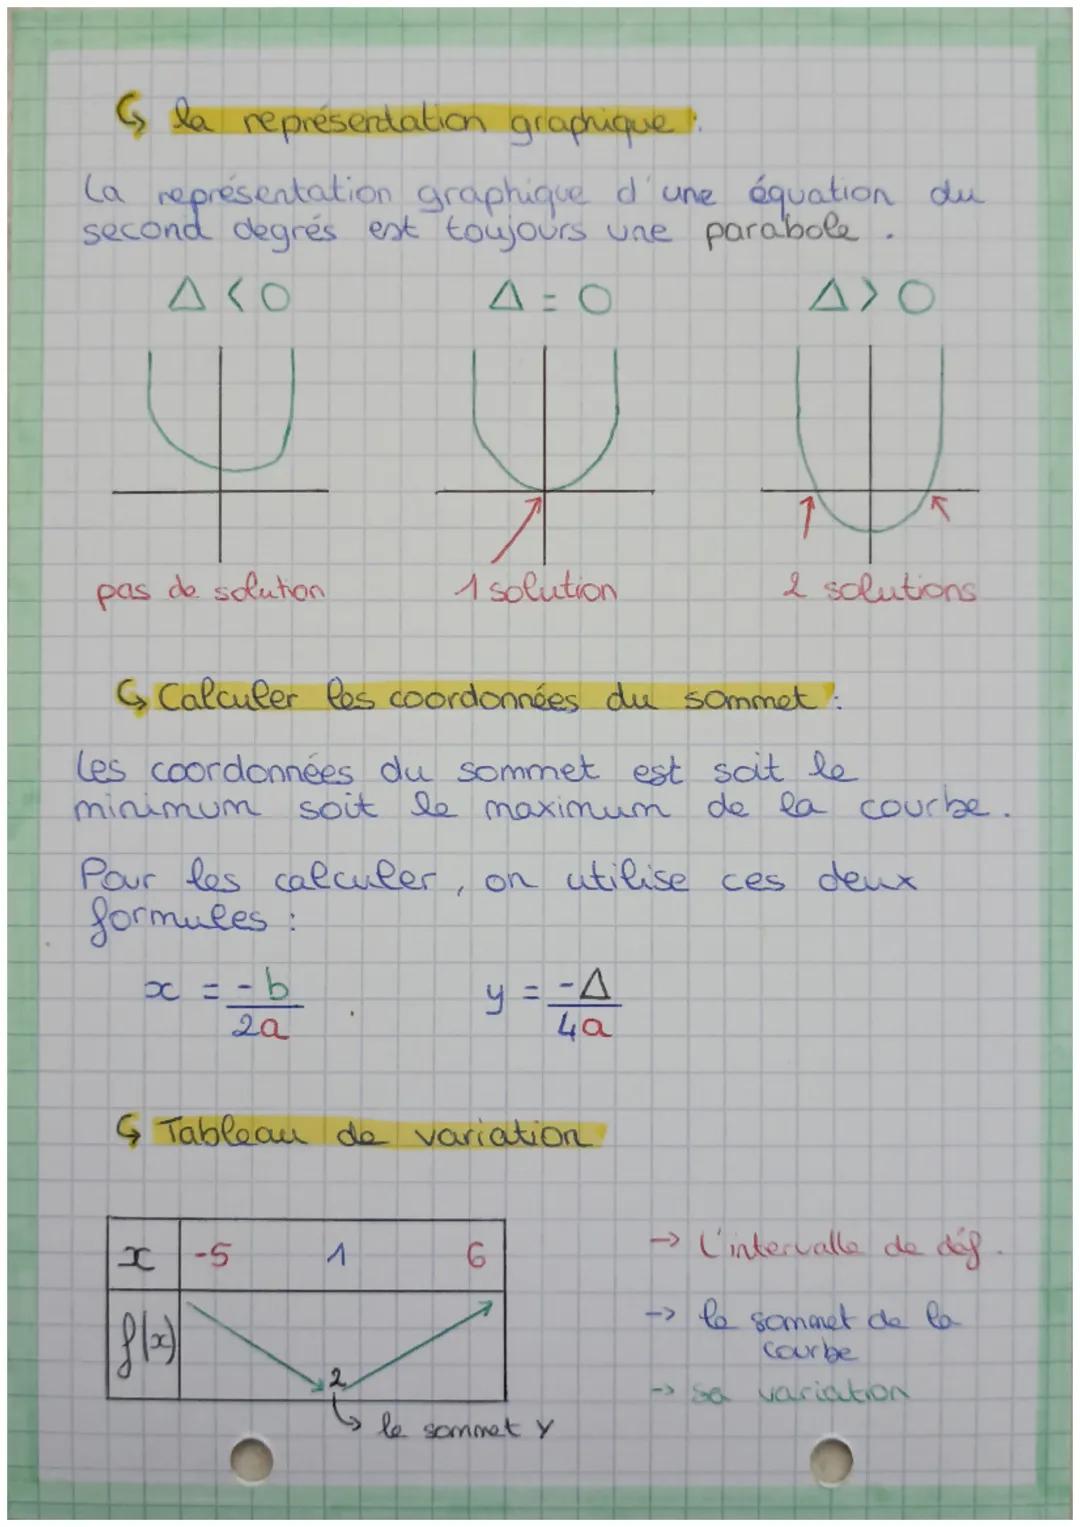 ↳ la représentation graphique :
La représentation graphique d'une équation du
second degrés est toujours une parabole.
Δ < 0 Δ = 0 Δ > 0
pas de solution 1 solution 2 solutions
↳ Calculer les coordonnées du sommet :
Les coordonnées du sommet est soit le
minimum soit le maximum de la courbe.
Pour les calculer, on utilise ces deux
formules :
x = -b/2a y = -Δ/4a
↳ Tableau de variation
x -5 1 6
f(x) 2
↳ le sommet y
→ L'intervalle de déf.
→ le sommet de la
courbe
→ sa variation